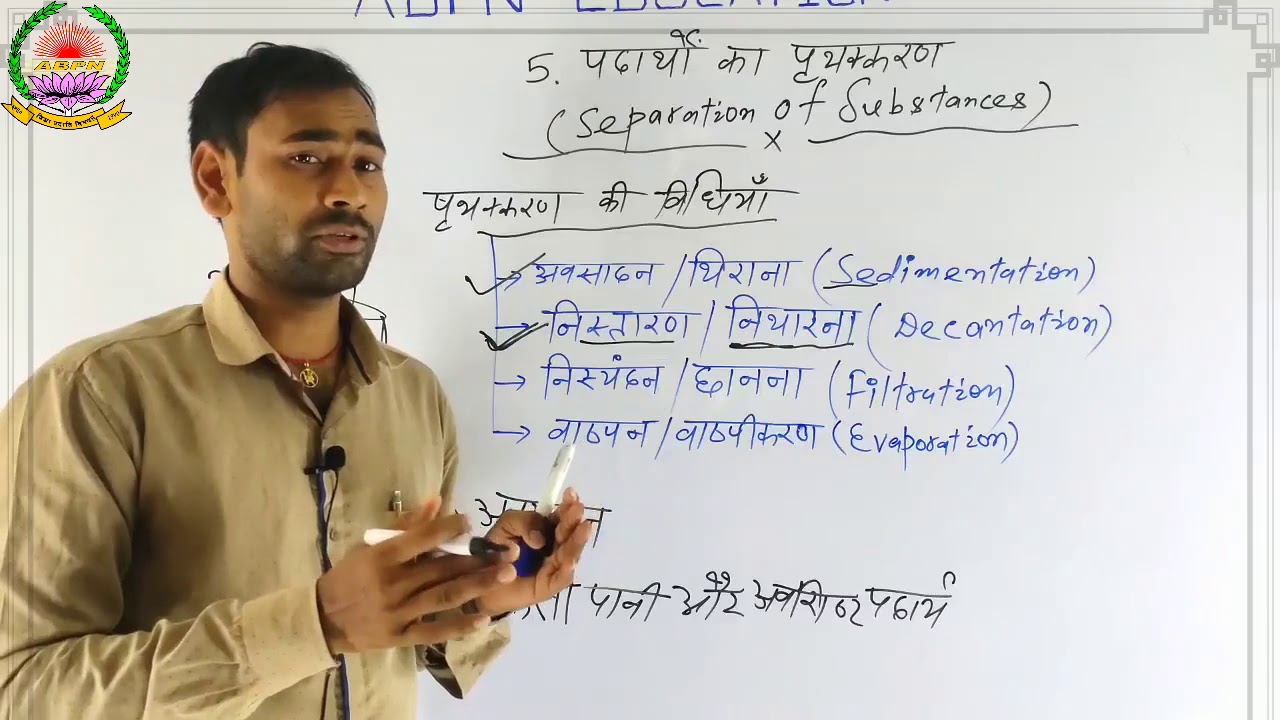 ABPN EDUCATION
ABPN
5. पदार्थों का पृथक्करण
(Separation of Substances)
x
पृथक्करण की विधियाँ
→ अवसादन / थिराना (Sedimentation)
→ निस्तारण / निथारना (Decantation)
→ निस्यंदन / छानना (Filtration)
→ वाष्पन / वाष्पीकरण (Evaporation)
पानी और अवशिष्ट पदार्थ